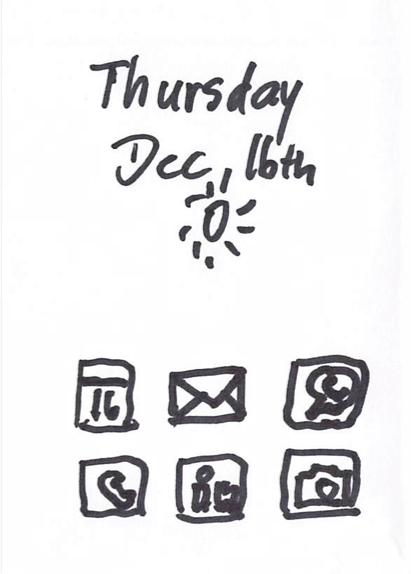 Thursday
Dec, 16th
16
in